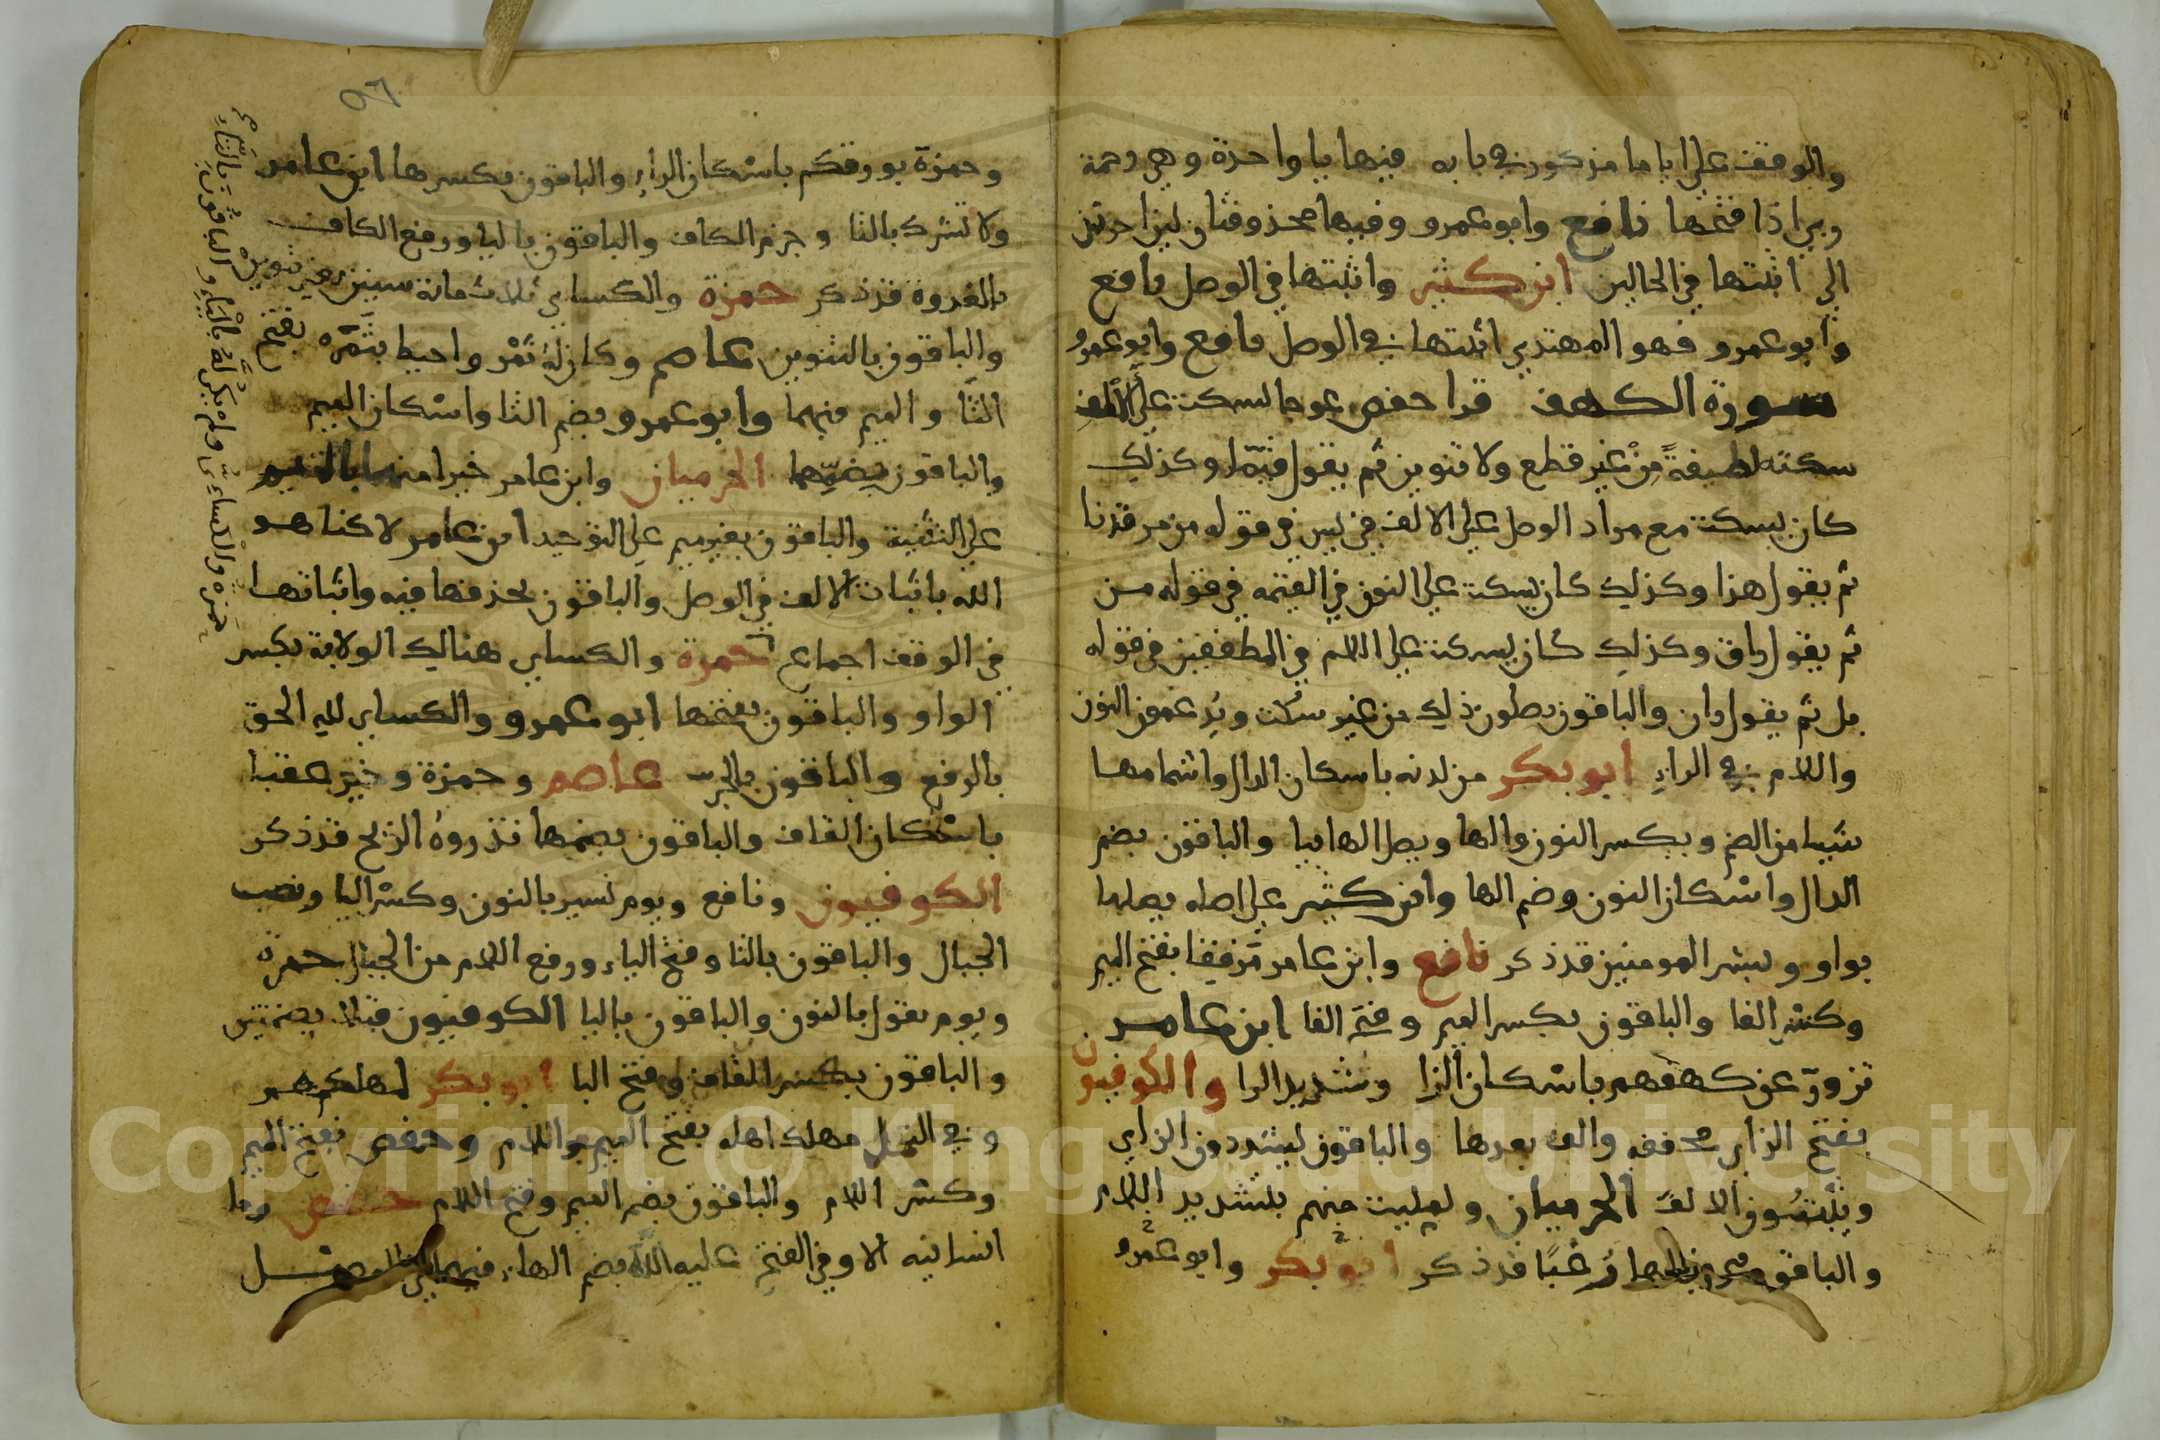 والوقف علي اياما مذكور في بابه فيها يا واحدة وهي رحمة
ربي اذا فتحها نافع وابو عمرو وفيها محذوفتان لين اخرتن
الي اثبتها في الحالين ابن كثير واثبتها في الوصل نافع
وابو عمرو فهو المهتدي اثبتها في الوصل نافع وابو عمرو
سورة الكهف قرا حفص عوجا يسكت علي الالف
سكتة لطيفةً مِنْ غير قطع ولا تنوين ثم يقول قيّمًا وكذلك
كان يسكت مع مراد الوصل علي الالف في يس في قوله من مرقدنا
ثم يقول هذا وكذلك كان يسكت علي النون في القيمه في قوله مـن
ثم يقول راق وكذلك كان يسكت علي اللام في المطففين في قوله
بل ثم يقول ران والباقون يصلون ذلك من غير سكت ويُدغمون النون
واللام في الراءِ ابو بكر من لدنه باسكان الدال واشمامها
شيا من الضم وبكسر النون والها ويصل الها بيا والباقون بضم
الدال واسْكان النون وضم الها وابن كثير علي اصله يصلها
بواو ويبشر المومنين قد ذكر نافع وابن عامر مَرفِقا بفتح الميم
وكسْر الفا والباقون بكسر الميم وفتح الفا ابن عامر
تزورّ عن كهفهم باسْكان الزا وتشديد الرا والكوفيون
بفتح الزاي مخففه والف بعدها والباقون يشددون الزاي
ويثبتُون الالفَ الحرميان ولمليت منهم بتشديد اللام
والباقون بتخفيفها رُعْبًا قد ذكر ابو بكر وابو عمرو
٥٦
وحمزة بوورقكم باسْكان الراءِ والباقون بكسرها ابن عامر
ولا تشرك بالتا وجزم الكاف والباقون باليا ورفع الكاف
بالغدوة قد ذكر حمزة والكساي ثلاث مائة سنين بغير تنوين
والباقون بالتنوين عاصم وكان له ثَمَر واحيط بثَمَرِه بفتح
الثَا والميم فيهما وابو عمرو بضم الثا واسْكان الميم
والباقون بضمّهما الحرميان وابن عامر خيرا منهما بالميم
علي التثنية والباقون بغير ميم علي التوحيد ابن عامر لاكنا هـو
الله باثبات الالف في الوصل والباقون بحذفها فيه واثباتهـا
في الوقف اجماع حمزة والكساي هنالك الولاية بكسر
الواو والباقون بفتحها ابو عمرو والكساي لله الحق
بالرفع والباقون بالجر عاصم وحمزة وخير عقبا
باسْكان القاف والباقون بضمها تذروهُ الريح قد ذكر
الكوفيون ونافع ويوم نسير بالنون وكسْر اليا ونصب
الجبال والباقون بالتا وفتح الياء ورفع اللام من الجبال حمزة
ويوم نقول بالنون والباقون باليا الكوفيون قبلا بضمتين
والباقون بكسر القاف وفتح البا ابو بكر لمهلكهم
وفي النمل مهلك اهله بفتح الميم واللام وحفص بفتح الميم
وكسْر اللام والباقون بضم الميم وفتح اللام حفص وما
انسانيه الا وفي الفتح عليه الله بضم الهاء فيهما في الوصـل
حمزه والكساءِيّ ولمْ يكن لَّهُ بالياءِ والباقون بالتاءِ